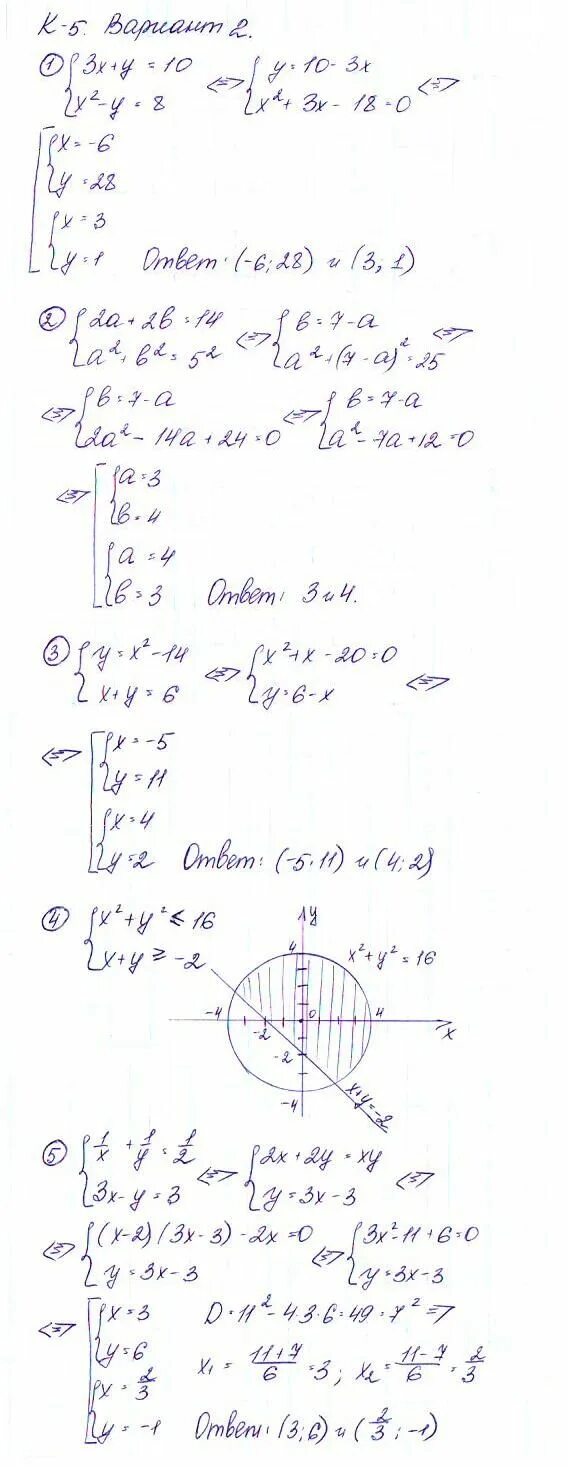 К-5. Вариант 2.
① {3x+y=10 <=> {y=10-3x <=>
{x²-y=8 {x²+3x-18=0
[{x=-6
{y=28
{x=3
{y=1 Ответ: (-6;28) и (3; 1)
② {2a+2b=14 <=> {b=7-a <=>
{a²+b²=5² {a²+(7-a)²=25
<=> {b=7-a <=> {b=7-a
{2a²-14a+24=0 {a²-7a+12=0
<=> [{a=3
{b=4
{a=4
{b=3 Ответ: 3 и 4.
③ {y=x²-14 <=> {x²+x-20=0
{x+y=6 {y=6-x <=>
<=> [{x=-5
{y=11
{x=4
{y=2 Ответ: (-5;11) и (4;2)
④ {x²+y²≤16
{x+y≥-2
y
4
x²+y²=16
-4
-2
0
4
x
-2
-4
x+y=-2
⑤ {1/x+1/y=1/2 <=> {2x+2y=xy <=>
{3x-y=3 {y=3x-3
<=> {(x-2)(3x-3)-2x=0 <=> {3x²-11+6=0
{y=3x-3 {y=3x-3
<=> [{x=3 D=11²-4·3·6=49=7² =>
{y=6 x₁=(11+7)/6=3; x₂=(11-7)/6=2/3
{x=2/3
{y=-1 Ответ: (3;6) и (2/3;-1)